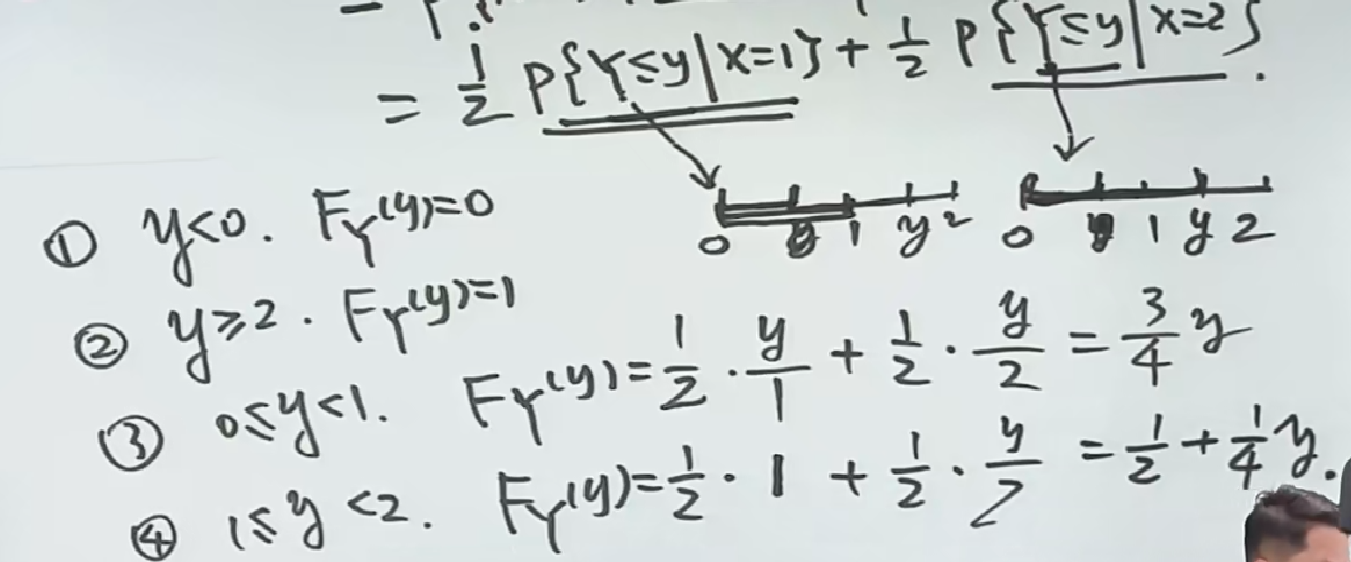 = 1/2 P{Y≤y|X=1} + 1/2 P{Y≤y|X=2}.
0 1 y 2 0 1 y 2
① y<0. F_Y(y)=0
② y≥2. F_Y(y)=1
③ 0≤y<1. F_Y(y)=1/2·y/1 + 1/2·y/2 = 3/4 y
④ 1≤y<2. F_Y(y)=1/2·1 + 1/2·y/2 = 1/2+1/4 y.